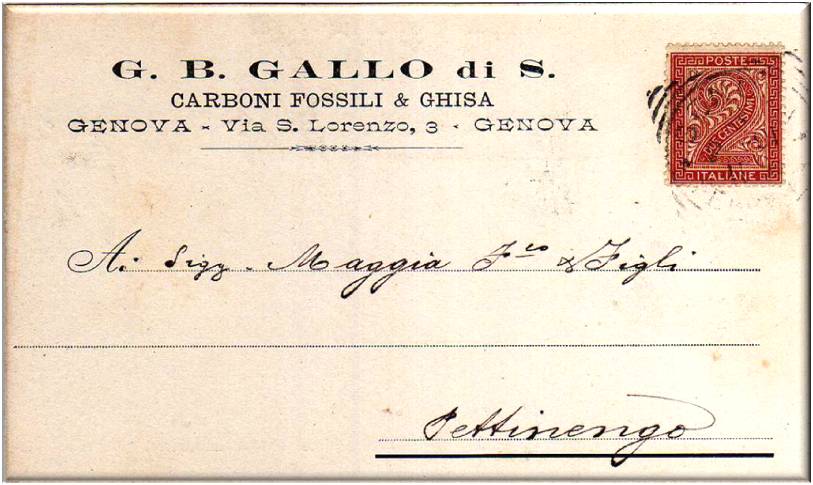 G. B. GALLO di S.
CARBONI FOSSILI & GHISA
GENOVA - Via S. Lorenzo, 3 - GENOVA
POSTE
DUE CENTESIMI
ITALIANE
Ai Sigg. Maggia F.lo & Figli
Pettinengo